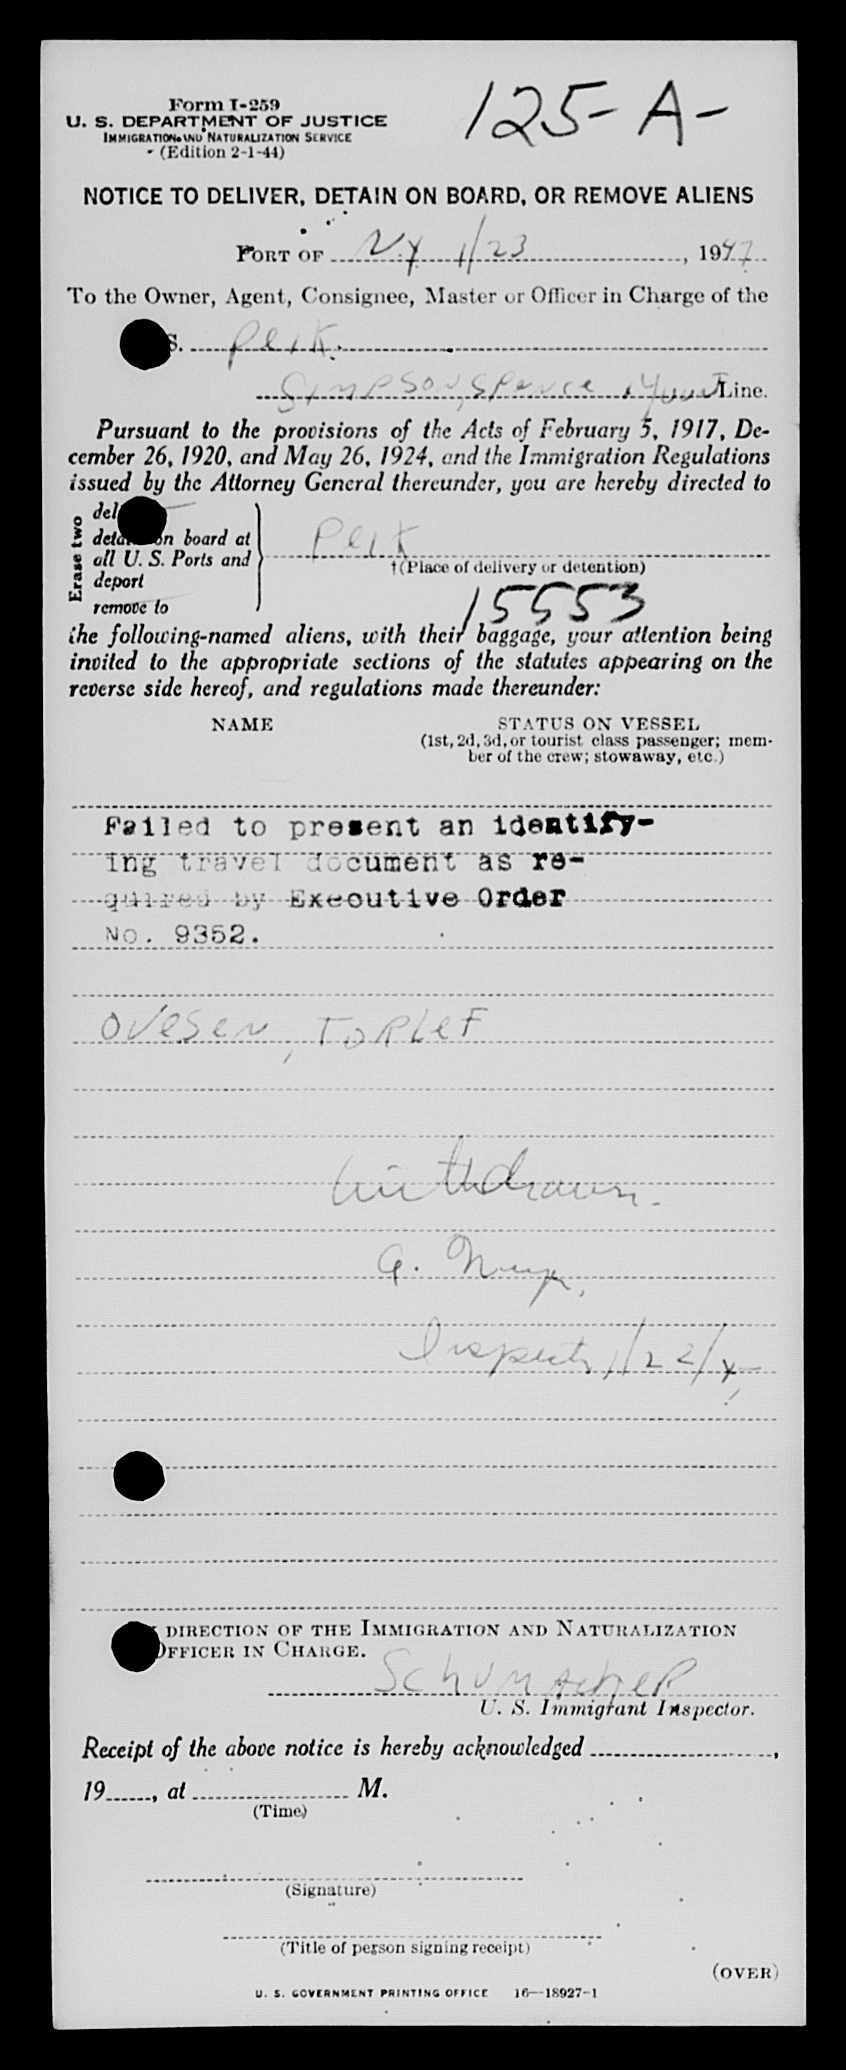 Form I-259
125-A-
U. S. DEPARTMENT OF JUSTICE
IMMIGRATION AND NATURALIZATION SERVICE
(Edition 2-1-44)
NOTICE TO DELIVER, DETAIN ON BOARD, OR REMOVE ALIENS
PORT OF NY 1/23, 1947
To the Owner, Agent, Consignee, Master or Officer in Charge of the
S. Peik
Simpson, Spence & Young Line.
Pursuant to the provisions of the Acts of February 5, 1917, De-
cember 26, 1920, and May 26, 1924, and the Immigration Regulations
issued by the Attorney General thereunder, you are hereby directed to
Erase two
del
deta on board at
all U. S. Ports and
deport
remove to
Peik
†(Place of delivery or detention)
15553
the following-named aliens, with their baggage, your attention being
invited to the appropriate sections of the statutes appearing on the
reverse side hereof, and regulations made thereunder:
NAME STATUS ON VESSEL
(1st, 2d, 3d, or tourist class passenger; mem-
ber of the crew; stowaway, etc.)
Failed to present an identify-
ing travel document as re-
quired by Executive Order
No. 9352.
Ovesen, Torlef
Withdrawn.
G.
Inspector 1/22/4
DIRECTION OF THE IMMIGRATION AND NATURALIZATION
OFFICER IN CHARGE.
Schumacher
U. S. Immigrant Inspector.
Receipt of the above notice is hereby acknowledged ,
19 , at M.
(Time)
(Signature)
(Title of person signing receipt)
(OVER)
U. S. GOVERNMENT PRINTING OFFICE 16—18927-1